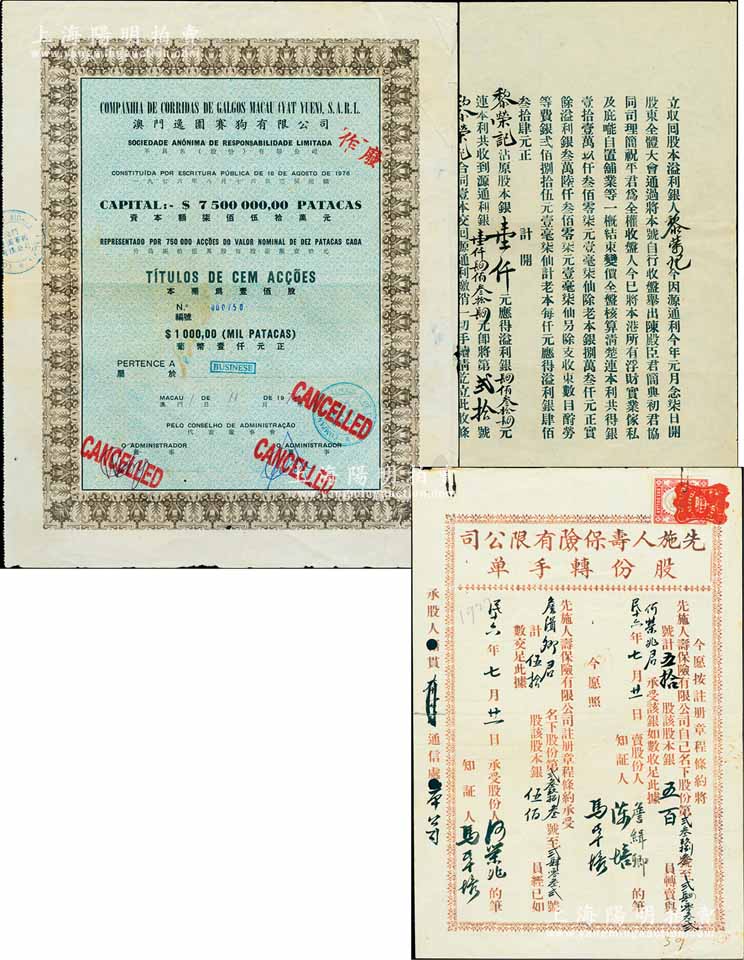 上海陽明拍賣
COMPANHIA DE CORRIDAS DE GALGOS MACAU (YAT YUEN), S.A.R.L.
澳門逸園賽狗有限公司
SOCIEDADE ANÓNIMA DE RESPONSABILIDADE LIMITADA
作廢
CONSTITUÍDA POR ESCRITURA PÚBLICA DE 16 DE AGOSTO DE 1976
CAPITAL:- $ 7 500 000,00 PATACAS
資本額柒佰伍拾萬元
REPRESENTADO POR 750 000 ACÇÕES DO VALOR NOMINAL DE DEZ PATACAS CADA
TÍTULOS DE CEM ACÇÕES
本票為壹佰股
N.º 000750
編號
$ 1 000,00 (MIL PATACAS)
葡幣壹仟元正
PERTENCE A BUSINESE
屬於
MACAU 1 DE 11 DE 19
澳門 日 月
PELO CONSELHO DE ADMINISTRAÇÃO
代表董事會
O ADMINISTRADOR O ADMINISTRADOR
董事 董事
CANCELLED
CANCELLED
CANCELLED
立收囘股本溢利銀人黎榮記今因源通利今年元月念柒日開
股東全體大會通過將本號自行收盤舉出陳殷臣君簡典初君協
同司理簡祝平君為全權收盤人今已將本港所有浮財實業傢私
及底嘥自置舖業等一概結束變價全盤核算清楚連本利共得銀
壹拾壹萬玖仟叁佰零柒元壹毫柒仙除老本銀捌萬叁仟元正實
餘溢利銀叁萬陸仟叁佰零柒元壹毫柒仙另除支收束數目酧勞
等費銀弍佰捌拾伍元壹毫柒仙計老本每仟元應得溢利銀肆佰
叁拾肆元正 計開
黎榮記沾原股本銀壹仟元應得溢利銀肆佰叁拾肆元
連本利共收到源通利銀壹仟肆佰叁拾肆元即將第弍拾號
黎榮記合同壹本交囘源通利繳銷一切手續清訖立此收條
先施人壽保險有限公司
股份轉手單
今愿按註册章程條約將
先施人壽保險有限公司自己名下股份第弍叁捌叁號至弍肆零叁弍
號計五拾股該股本銀五百員轉賣與
何榮兆君承受該銀如數收足此據
民十六年七月廿一日 賣股份人詹緝卿的筆
知証人陳培 馬
今愿照
先施人壽保險有限公司註册章程條約承受
詹緝卿君名下股份第弍叁捌叁號至弍肆零叁弍號
計伍拾股該股本銀伍佰員經已如
數交足此據
1927
民十六年七月廿一日 承受股份人何榮兆的筆
知証人馬
承股人籍貫 通信處本公司
59
上海陽明拍賣
www.yangmingauction.com